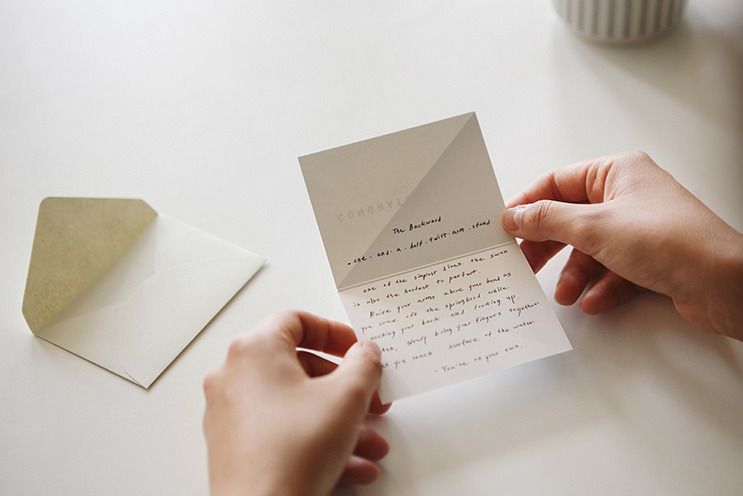 CONGRAT
The Backward
- one - and - a - half - twist - arm - stand
one of the simplest dives the swan
is also the hardest to perfect
Raise your arms above your head as
you come off the springboard while
arching your back and
slowly bring your fingers together
as you reach surface of the water
- You're on your own.